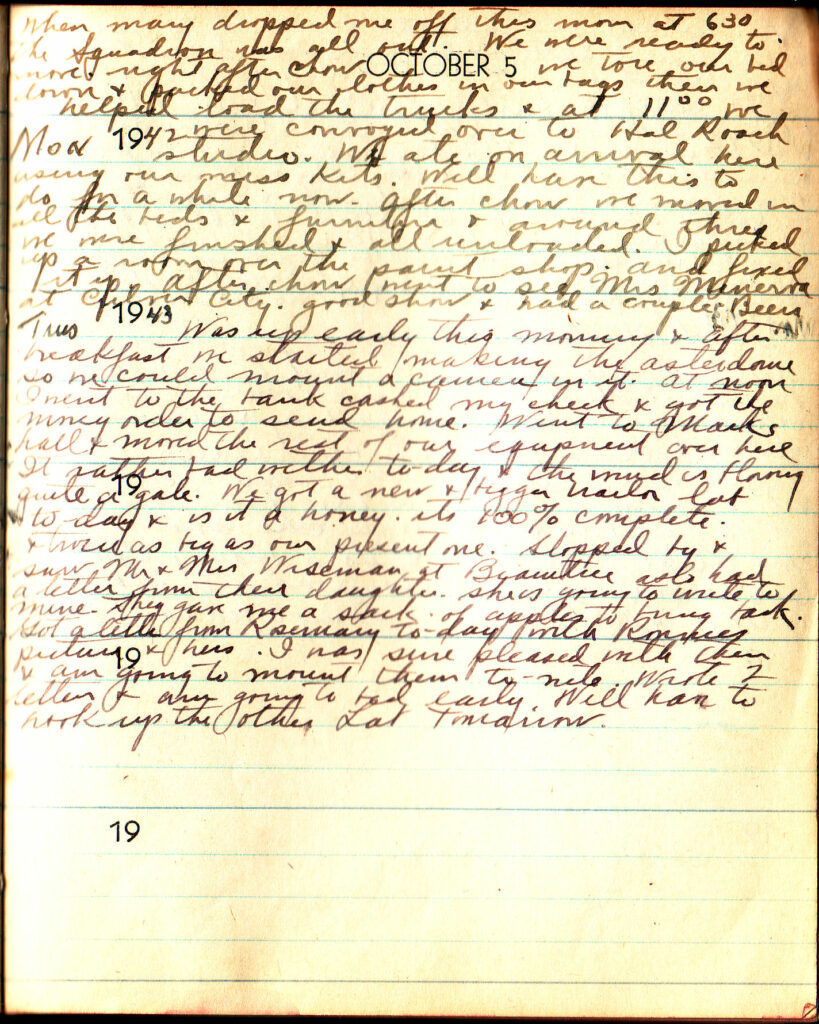 When mary dropped me off this morn at 630
the Squadron was all out. We were ready to
move right after chow we tore our bed
OCTOBER 5
down & packed our clothes in our bags then we
helped load the trucks & at 11 00 we
Mon 1942 were convoyed over to Hal Roach
studio. We ate on arrival here
using our mess kits. Will have this to
do for a while now. After chow we moved in
all the beds & furniture & around three
we were finished & all unloaded. I picked
up a room over the paint shop. and fixed
it up. After chow went to see Mrs Minerva
at Culver City. good show & had a couple Beers
1943
Tues Was up early this morning & after
breakfast we started making the asterdome
so we could mount a camera in it. at noon
I went to the bank cashed my check & got the
money order to send home. Went to Marks
hall & moved the rest of our equipment over here
It rather bad wether to-day & the wind is blowing
19
quite a gale. We got a new & bigger trailor lab
to-day & is it a honey. its 100% complete.
& twice as big as our present one. Stopped by &
saw Mr & Mrs Wiseman at had
a letter from their daughter. she is going to write to
mine. They gave me a sack of apples to bring back.
Got a letter from Rosemary to-day with Ronnies
picture & hers. I was sure pleased with them
19
& am going to mount them to-nite. Wrote 2
letters & am going to bed early. Will have to
hook up the other Lab tomarrow.
19